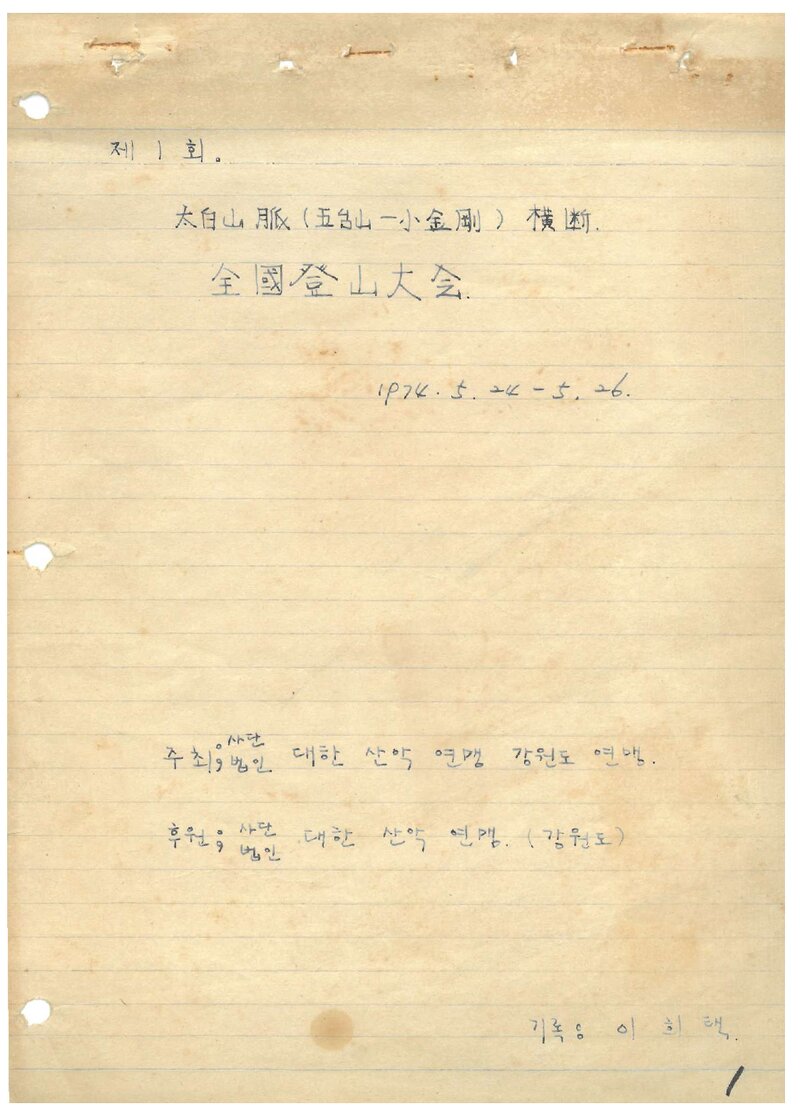 제 1 회.
太白山脈(五台山-小金剛) 横断.
全國登山大会.
1974. 5. 24 - 5. 26.
주최; 사단법인 대한 산악 연맹 강원도 연맹.
후원; 사단법인 대한 산악 연맹. (강원도)
기록; 이 희 택.
1